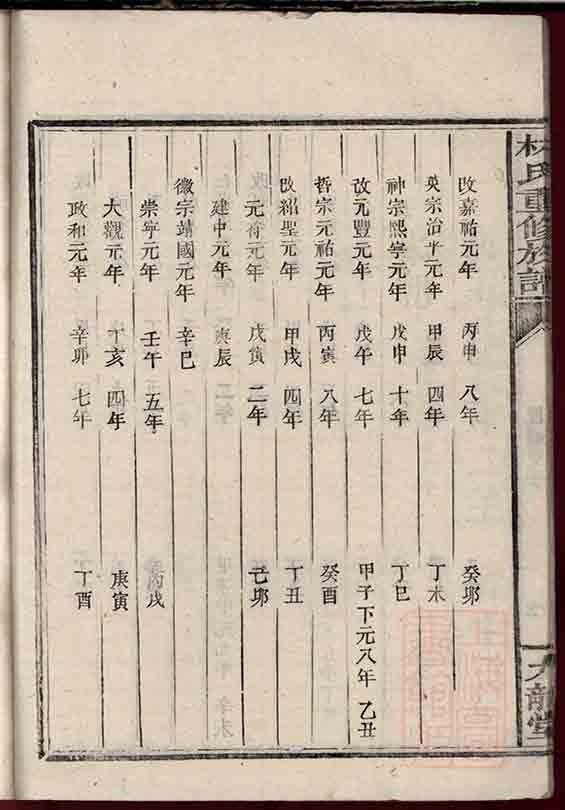 林氏重修族譜
改嘉祐元年 丙申 八年 癸卯
英宗治平元年 甲辰 四年 丁未
神宗熙寧元年 戊申 十年 丁巳
改元豐元年 戊午 七年 甲子下元八年 乙丑
哲宗元祐元年 丙寅 八年 癸酉
改紹聖元年 甲戌 四年 丁丑
元符元年 戊寅 二年 己卯
建中元年 庚辰
徽宗靖國元年 辛巳
崇寧元年 壬午 五年 丙戌
大觀元年 丁亥 四年 庚寅
政和元年 辛卯 七年 丁酉